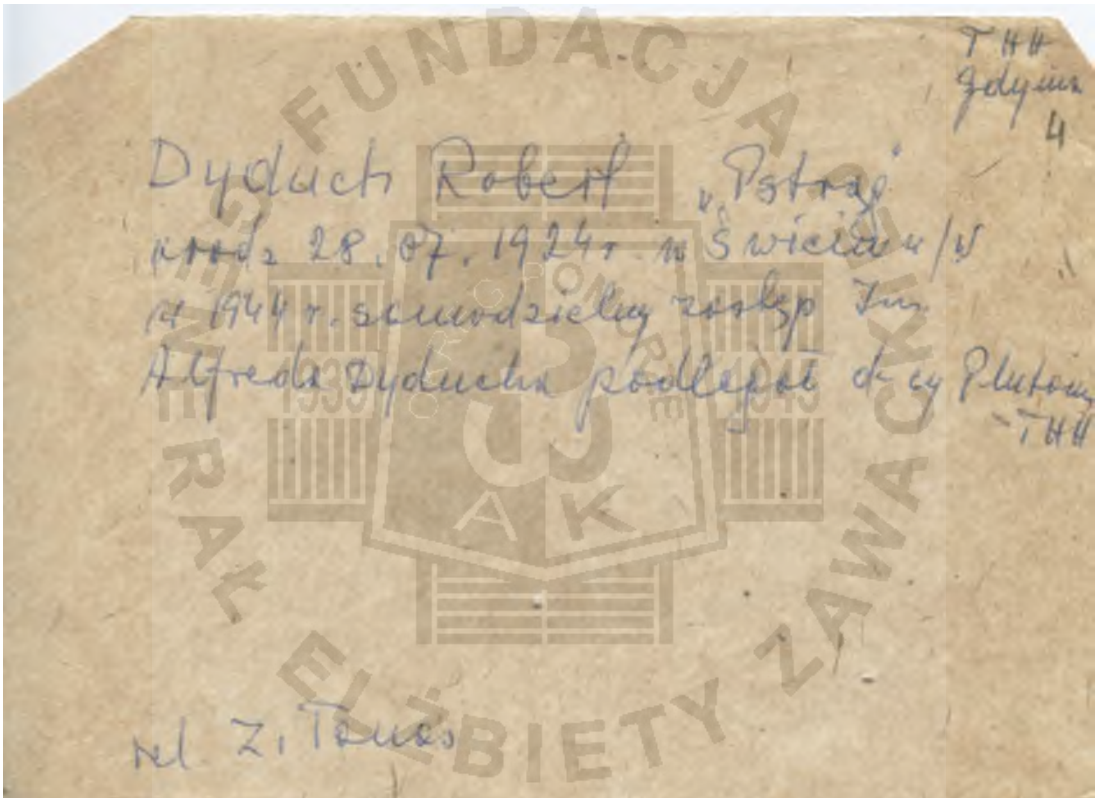 THH
Gdynia
4
Dyduch Robert „Pstrąg”
urodz 28.07.1924 r. w Świeciu n/W
w 1944 r. samodzielny zastęp Im.
Alfreda Dyducha podlegał d-cy Plutonu
THH
rel Z. Tomas
FUNDACJA GENERAŁ ELŻBIETY ZAWACKIEJ
1939 1945
AK